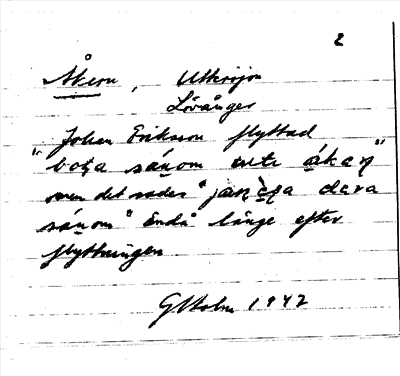 2
Åkern, Utkröjon
Lövånger
"Johan Eriksson flyttad
bota sånom uti åkeŋ"
men det sades "jan
sånom" ändå länge efter
flyttningen
G Holm 1942